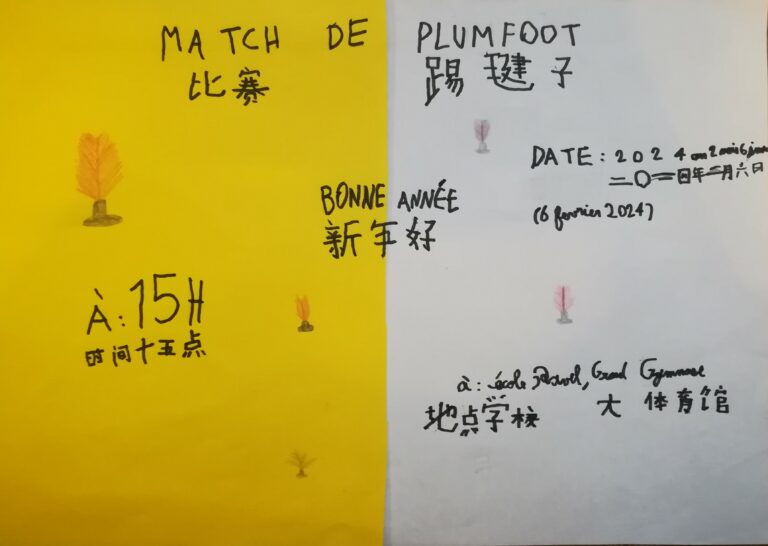 MATCH DE PLUMFOOT
比赛 踢毽子
DATE: 2024 an 2 mois 6 jours
二〇二四年二月六日
(6 fevrier 2024)
BONNE ANNÉE
新年好
À: 15H
时间十五点
à: école, Grand Gymnase
地点学校 大体育馆